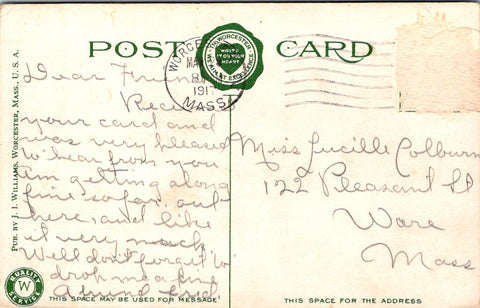 POST CARD
TO WORCESTER
WRITE
IT ON YOUR
HEART
WORCE
MA
191
MASS.
PUB. BY J. I. WILLIAMS, WORCESTER, MASS., U. S. A.
QUALITY
W
SERVICE
Dear
Rec'd
your card and
was very pleased
to hear from you
Am getting along
fine so far, out
here, and like
it very much
Well don't forget to
drop me a line
A friend
Miss Lucille Colburn
122 Pleasant St
Ware
Mass
THIS SPACE MAY BE USED FOR MESSAGE
THIS SPACE FOR THE ADDRESS